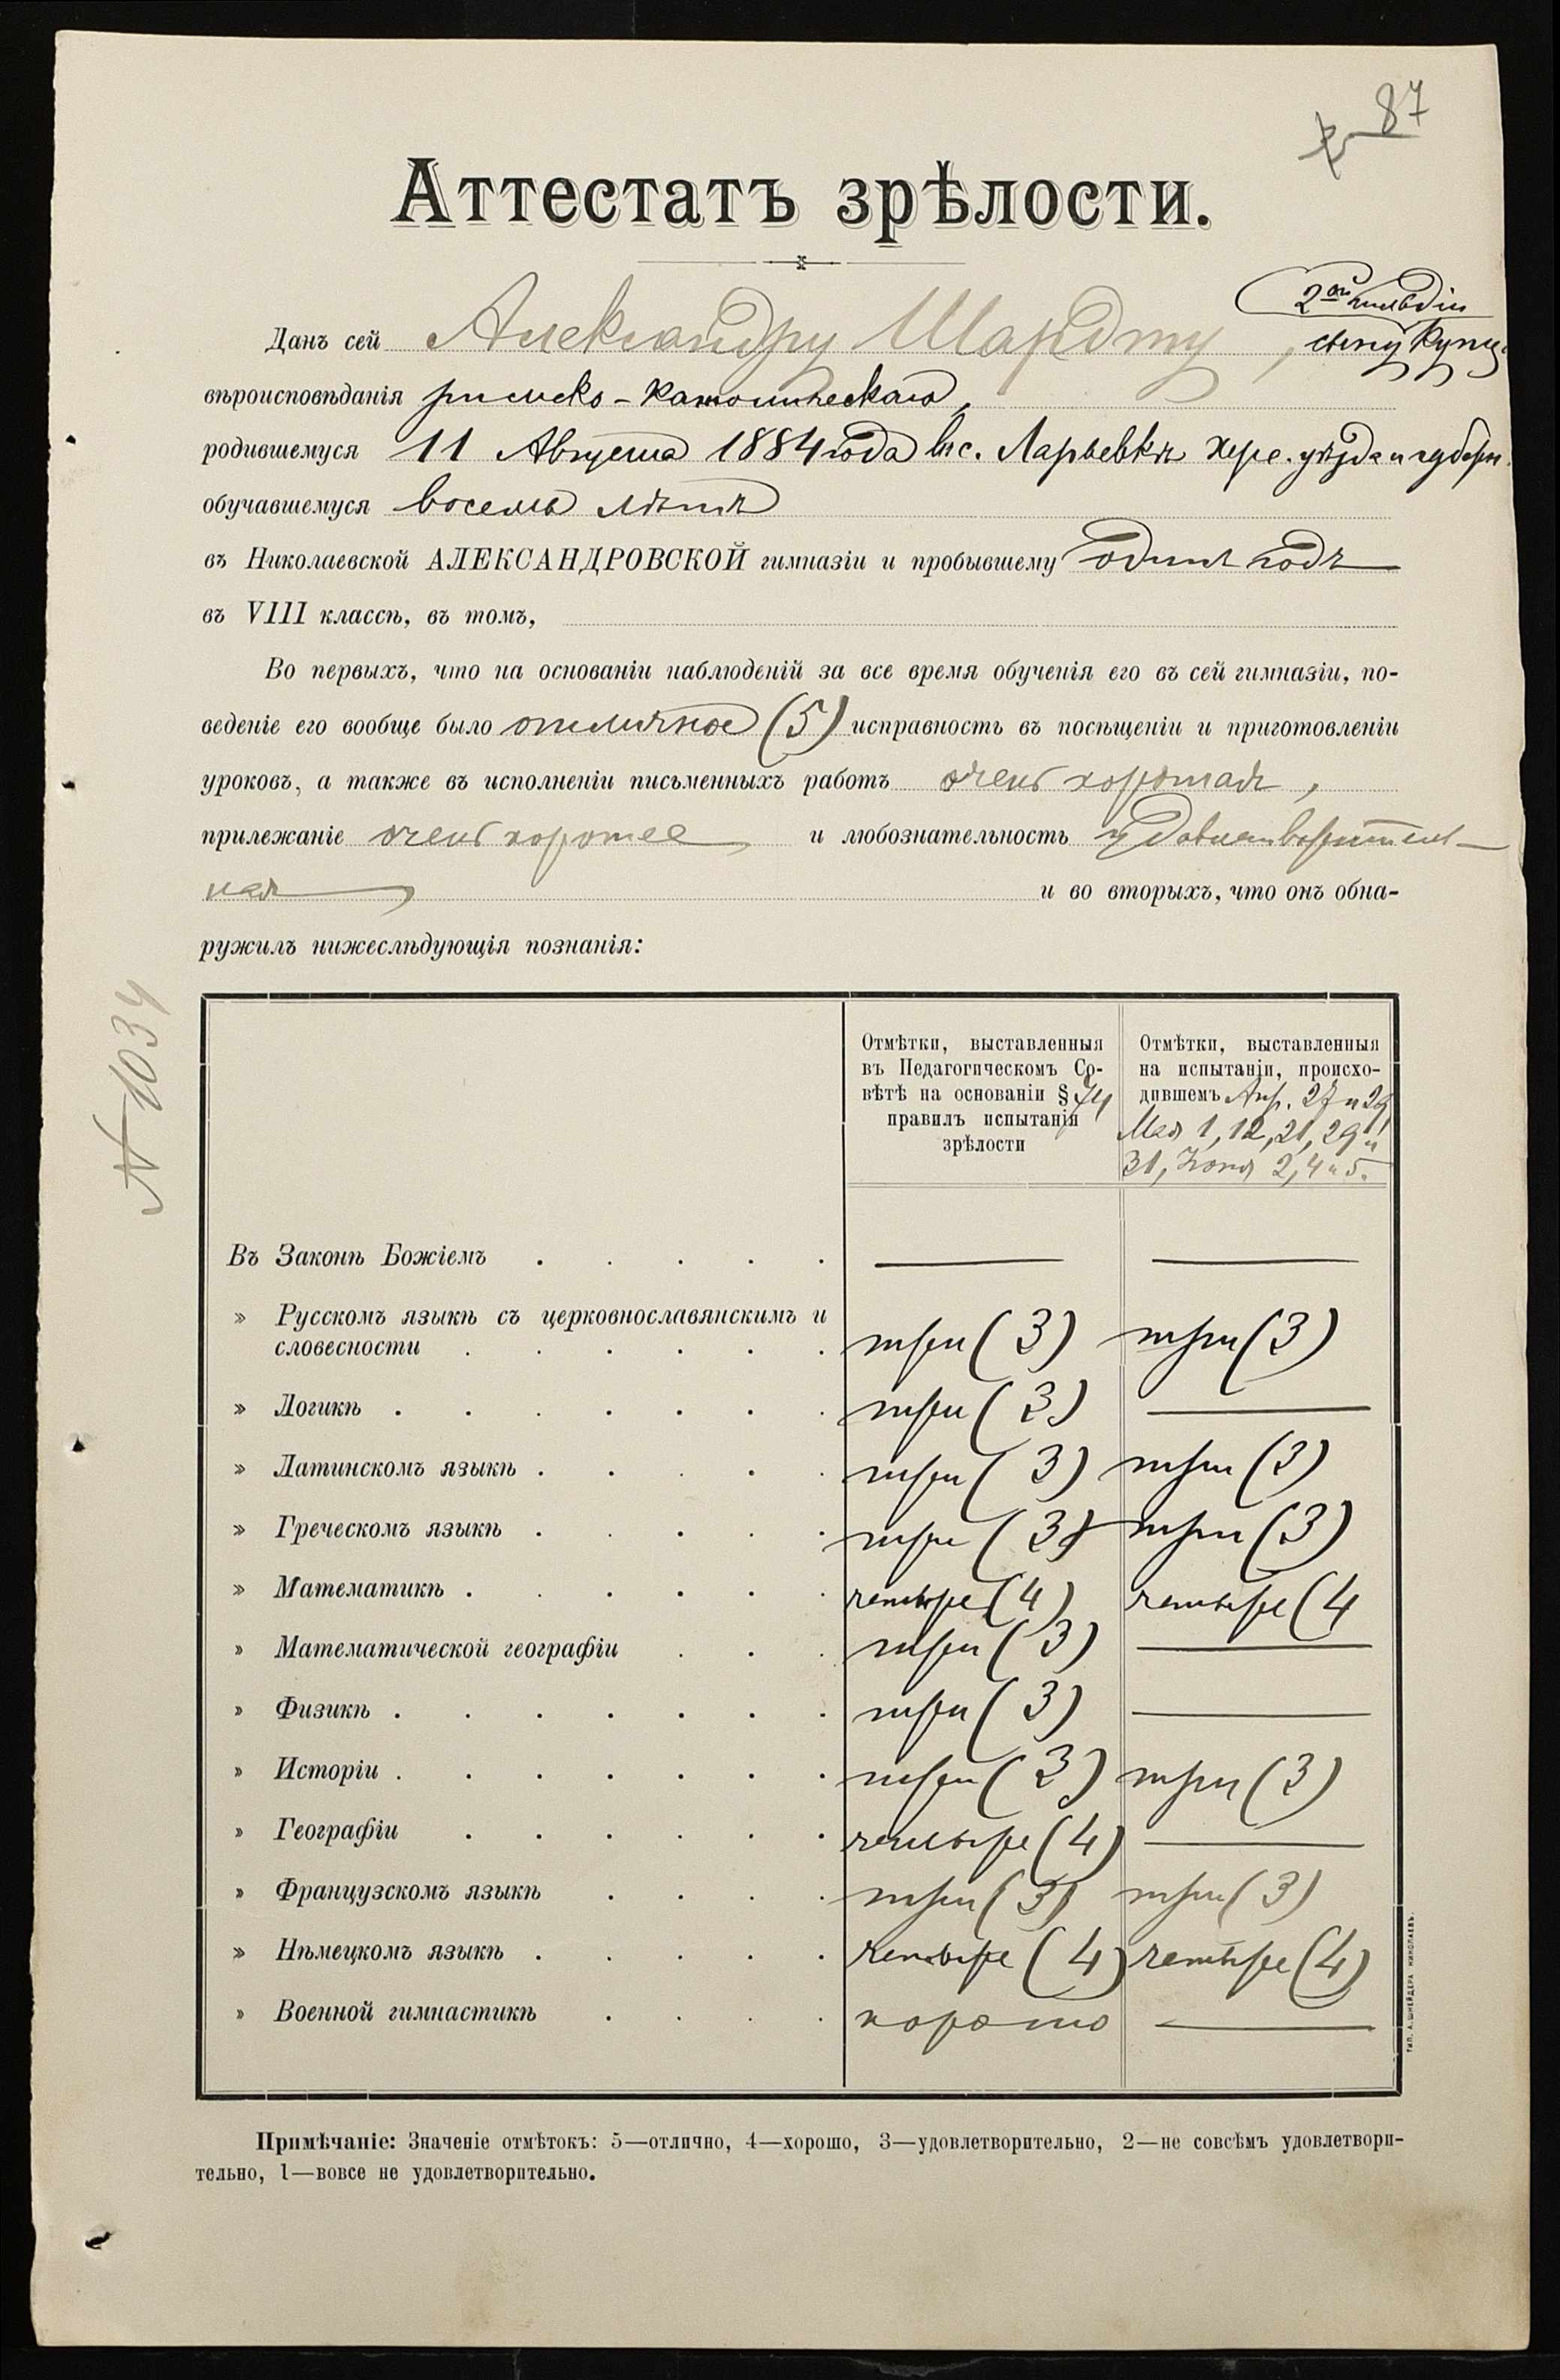 87
Аттестатъ зрѣлости.
2ой гильдіи
Данъ сей Александру Шардту, сыну купца
вѣроисповѣданія римско-католическаго,
родившемуся 11 Августа 1884 года въ с. Ларьевкѣ Херс. уѣзда и губерн.
обучавшемуся восемь лѣтъ
въ Николаевской АЛЕКСАНДРОВСКОЙ гимназіи и пробывшему одинъ годъ
въ VIII классѣ, въ томъ,
Во первыхъ, что на основаніи наблюденій за все время обученія его въ сей гимназіи, по-
веденіе его вообще было отличное (5) исправность въ посѣщеніи и приготовленіи
уроковъ, а также въ исполненіи письменныхъ работъ очень хорошая,
прилежаніе очень хорошее, и любознательность удовлетворитель-
ная, и во вторыхъ, что онъ обна-
ружилъ нижеслѣдующія познанія:
№ 1034
Отмѣтки, выставленныя
въ Педагогическомъ Со-
вѣтѣ на основаніи § 74
правилъ испытанія
зрѣлости
Отмѣтки, выставленныя
на испытаніи, происхо-
дившемъ Апр. 27 и 29,
Мая 1, 12, 21, 29 и
31, Іюня 2, 4 и 5.
Въ Законѣ Божіемъ . . . . . — —
» Русскомъ языкѣ съ церковнославянскимъ и
словесности . . . . . . три (3) три (3)
» Логикѣ . . . . . . . три (3) —
» Латинскомъ языкѣ . . . . . три (3) три (3)
» Греческомъ языкѣ . . . . . три (3) три (3)
» Математикѣ . . . . . . четыре (4) четыре (4
» Математической географіи . . . три (3) —
» Физикѣ . . . . . . . три (3) —
» Исторіи . . . . . . . три (3) три (3)
» Географіи . . . . . . четыре (4) —
» Французскомъ языкѣ . . . . три (3) три (3)
» Нѣмецкомъ языкѣ . . . . . четыре (4) четыре (4)
» Военной гимнастикѣ . . . . хорошо —
Примѣчаніе: Значеніе отмѣтокъ: 5—отлично, 4—хорошо, 3—удовлетворительно, 2—не совсѣмъ удовлетвори-
тельно, 1—вовсе не удовлетворительно.
ТИП. А. ШНЕЙДЕРА НИКОЛАЕВЪ.